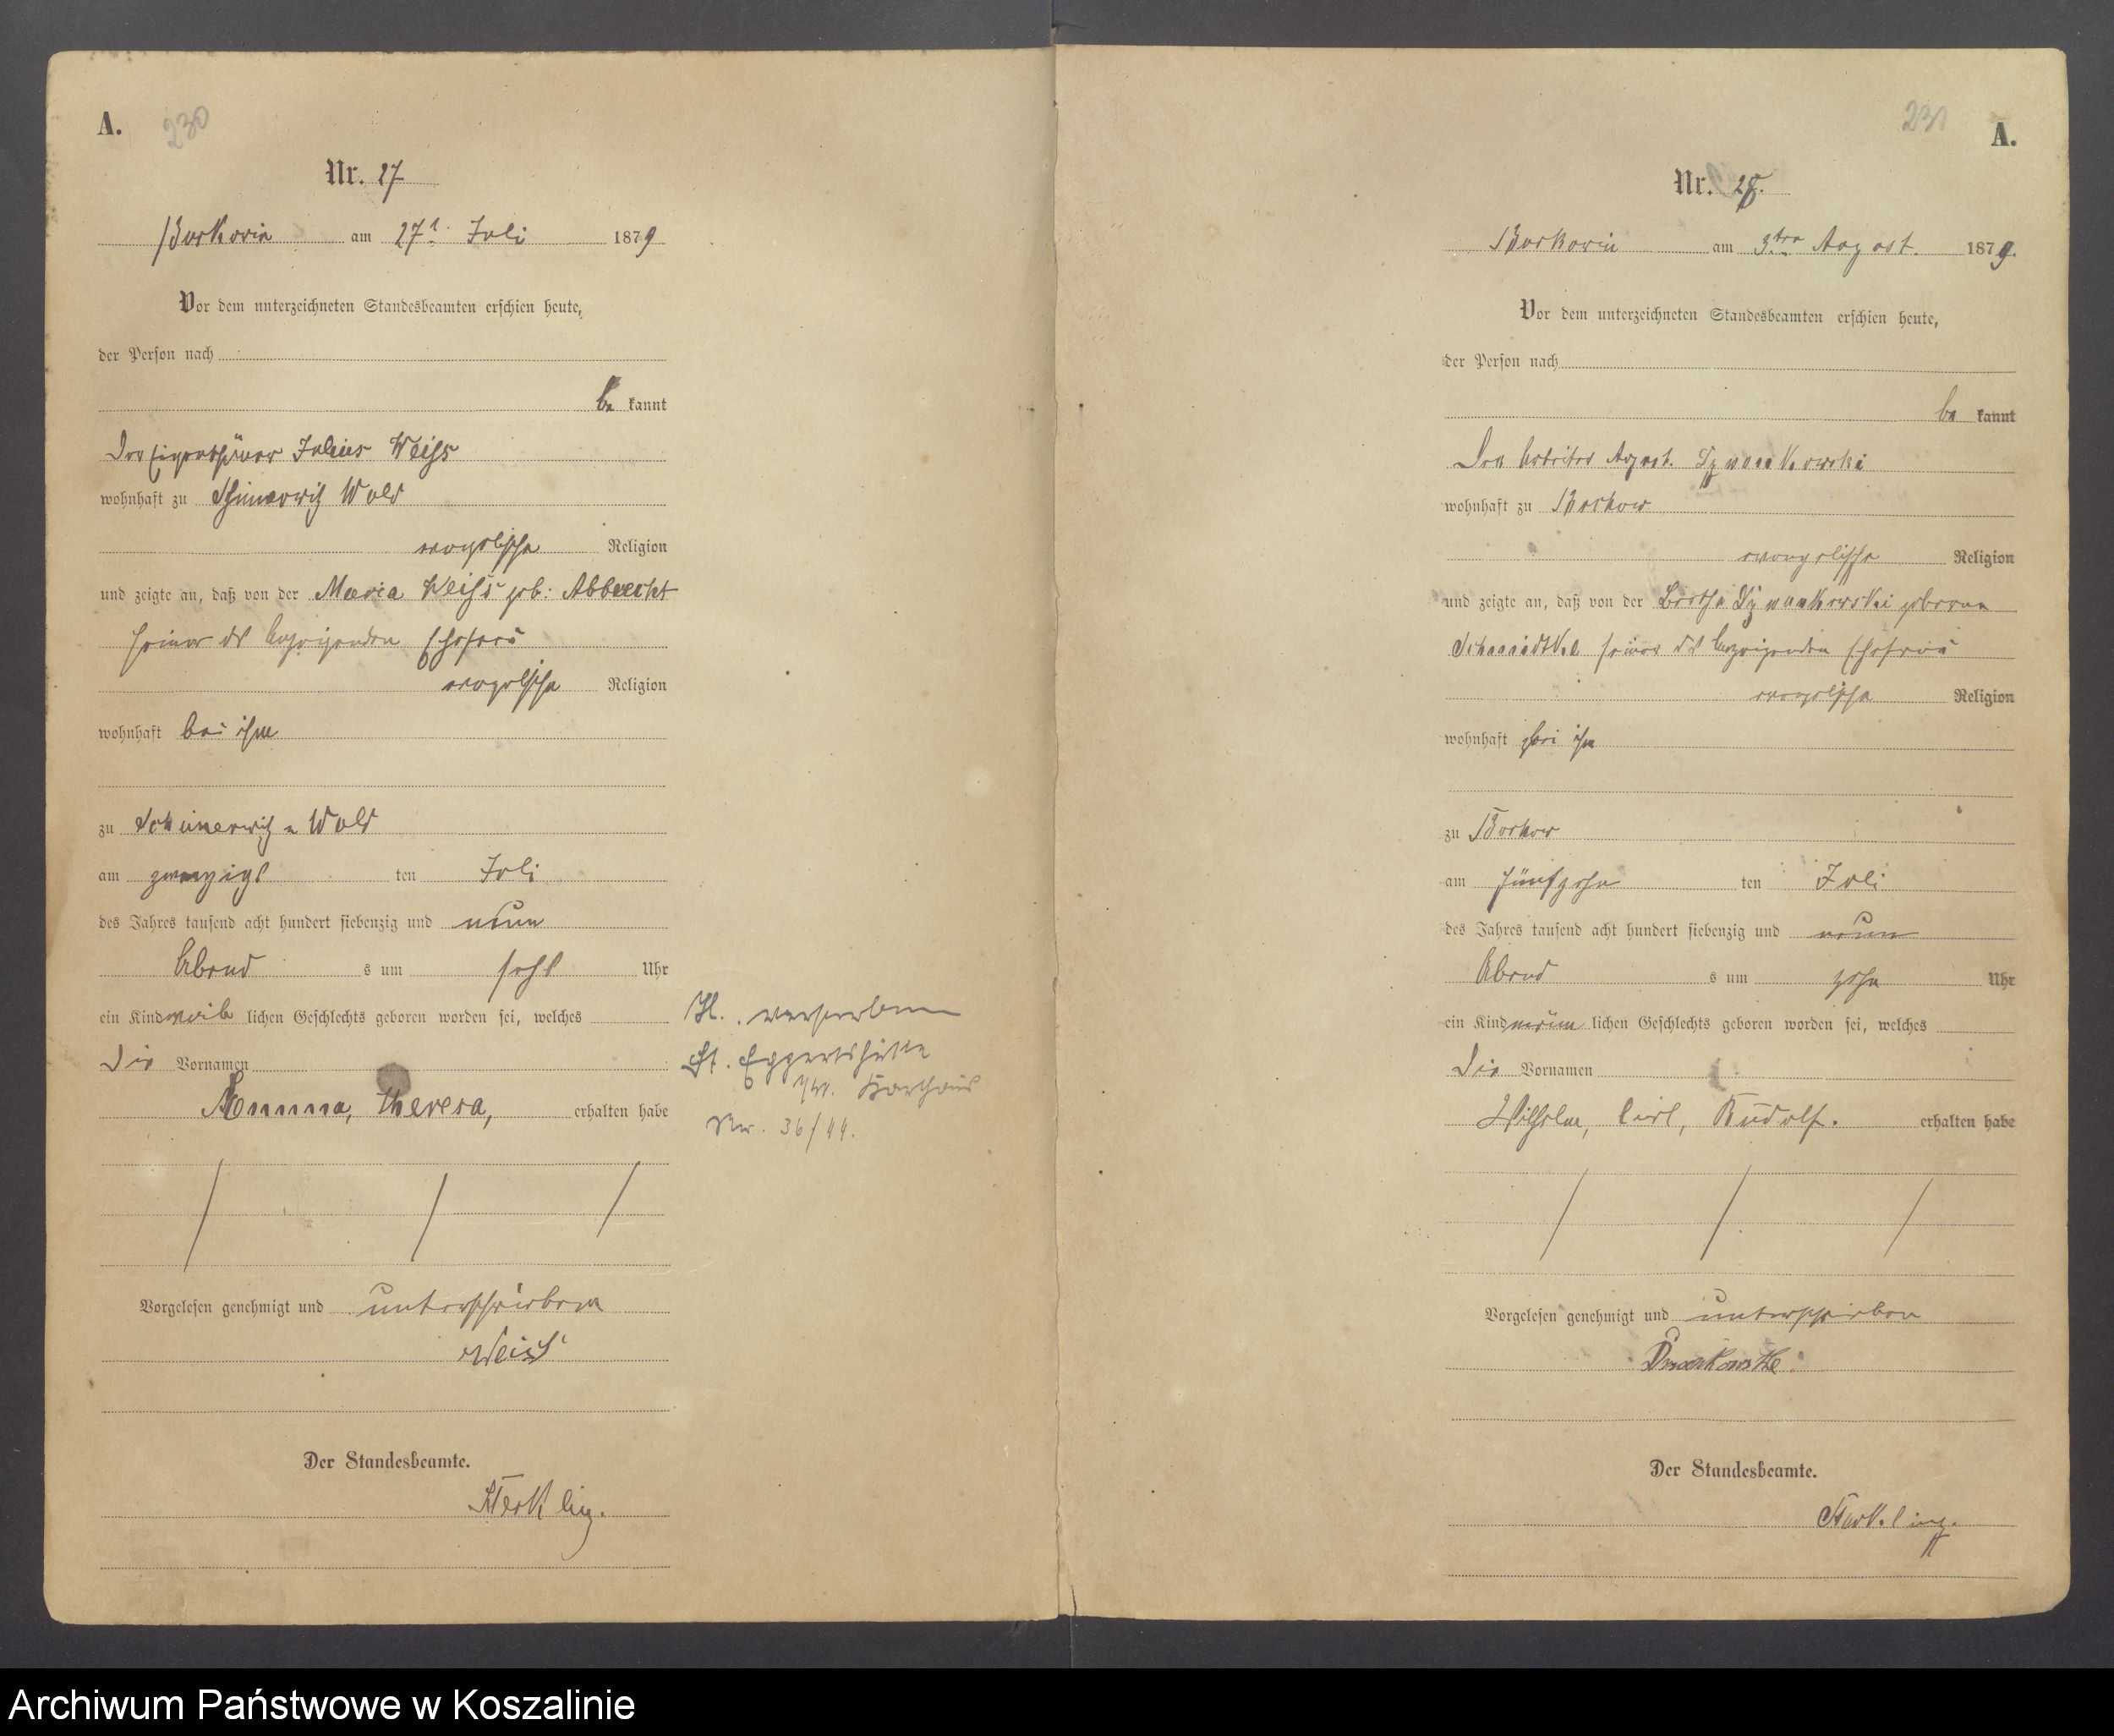 A.
230
Nr. 27
am 27t Juli 1879
Vor dem unterzeichneten Standesbeamten erschien heute,
der Person nach
be kannt
Der Eigenthümer Julius Weiß
wohnhaft zu Wald
evangelischer Religion
und zeigte an, daß von der Maria Weiß geb:
seiner des Anzeigenden Ehefrau
evangelischer Religion
wohnhaft bei ihm
zu Wald
am zwanzigs ten Juli
des Jahres tausend acht hundert siebenzig und neun
Abend s um sechs Uhr
ein Kind weib lichen Geschlechts geboren worden sei, welches
die Vornamen
Theresa, erhalten habe
Vorgelesen genehmigt und unterschrieben
Weiß
Der Standesbeamte.
verstorben
St. Eggertshütte
Kr. Karthaus
Nr. 36/44.
231
A.
Nr. 28.
am 3ten August. 1879.
Vor dem unterzeichneten Standesbeamten erschien heute,
der Person nach
be kannt
Der Arbeiter August
wohnhaft zu Borkow
evangelischer Religion
und zeigte an, daß von der Bertha geborene
seiner des Anzeigenden Ehefrau
evangelischer Religion
wohnhaft bei ihm
zu Borkow
am fünfzehn ten Juli
des Jahres tausend acht hundert siebenzig und neun
Abend s um zehn Uhr
ein Kind männ lichen Geschlechts geboren worden sei, welches
die Vornamen
Wilhelm, Carl, Rudolf. erhalten habe
Vorgelesen genehmigt und unterschrieben
Der Standesbeamte.
Archiwum Państwowe w Koszalinie